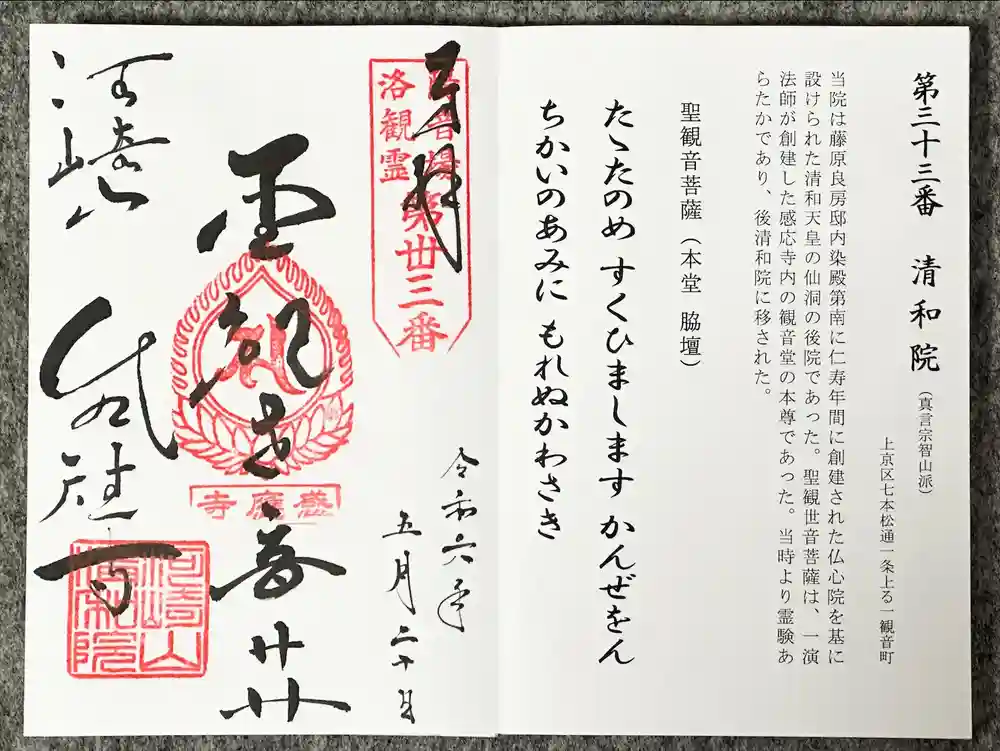 第三十三番　清和院（真言宗智山派）
上京区七本松通一条上る一観音町
当院は藤原良房邸内染殿第南に仁寿年間に創建された仏心院を基に
設けられた清和天皇の仙洞の後院であった。聖観世音菩薩は、一演
法師が創建した感応寺内の観音堂の本尊であった。当時より霊験あ
らたかであり、後清和院に移された。
聖観音菩薩（本堂　脇壇）
たゝたのめ すくひまします かんぜをん
ちかいのあみに もれぬかわさき
奉拝
洛観霊
第丗三番
令和六年
五月二十日
感應寺
河崎
清和院
河崎山
清和院